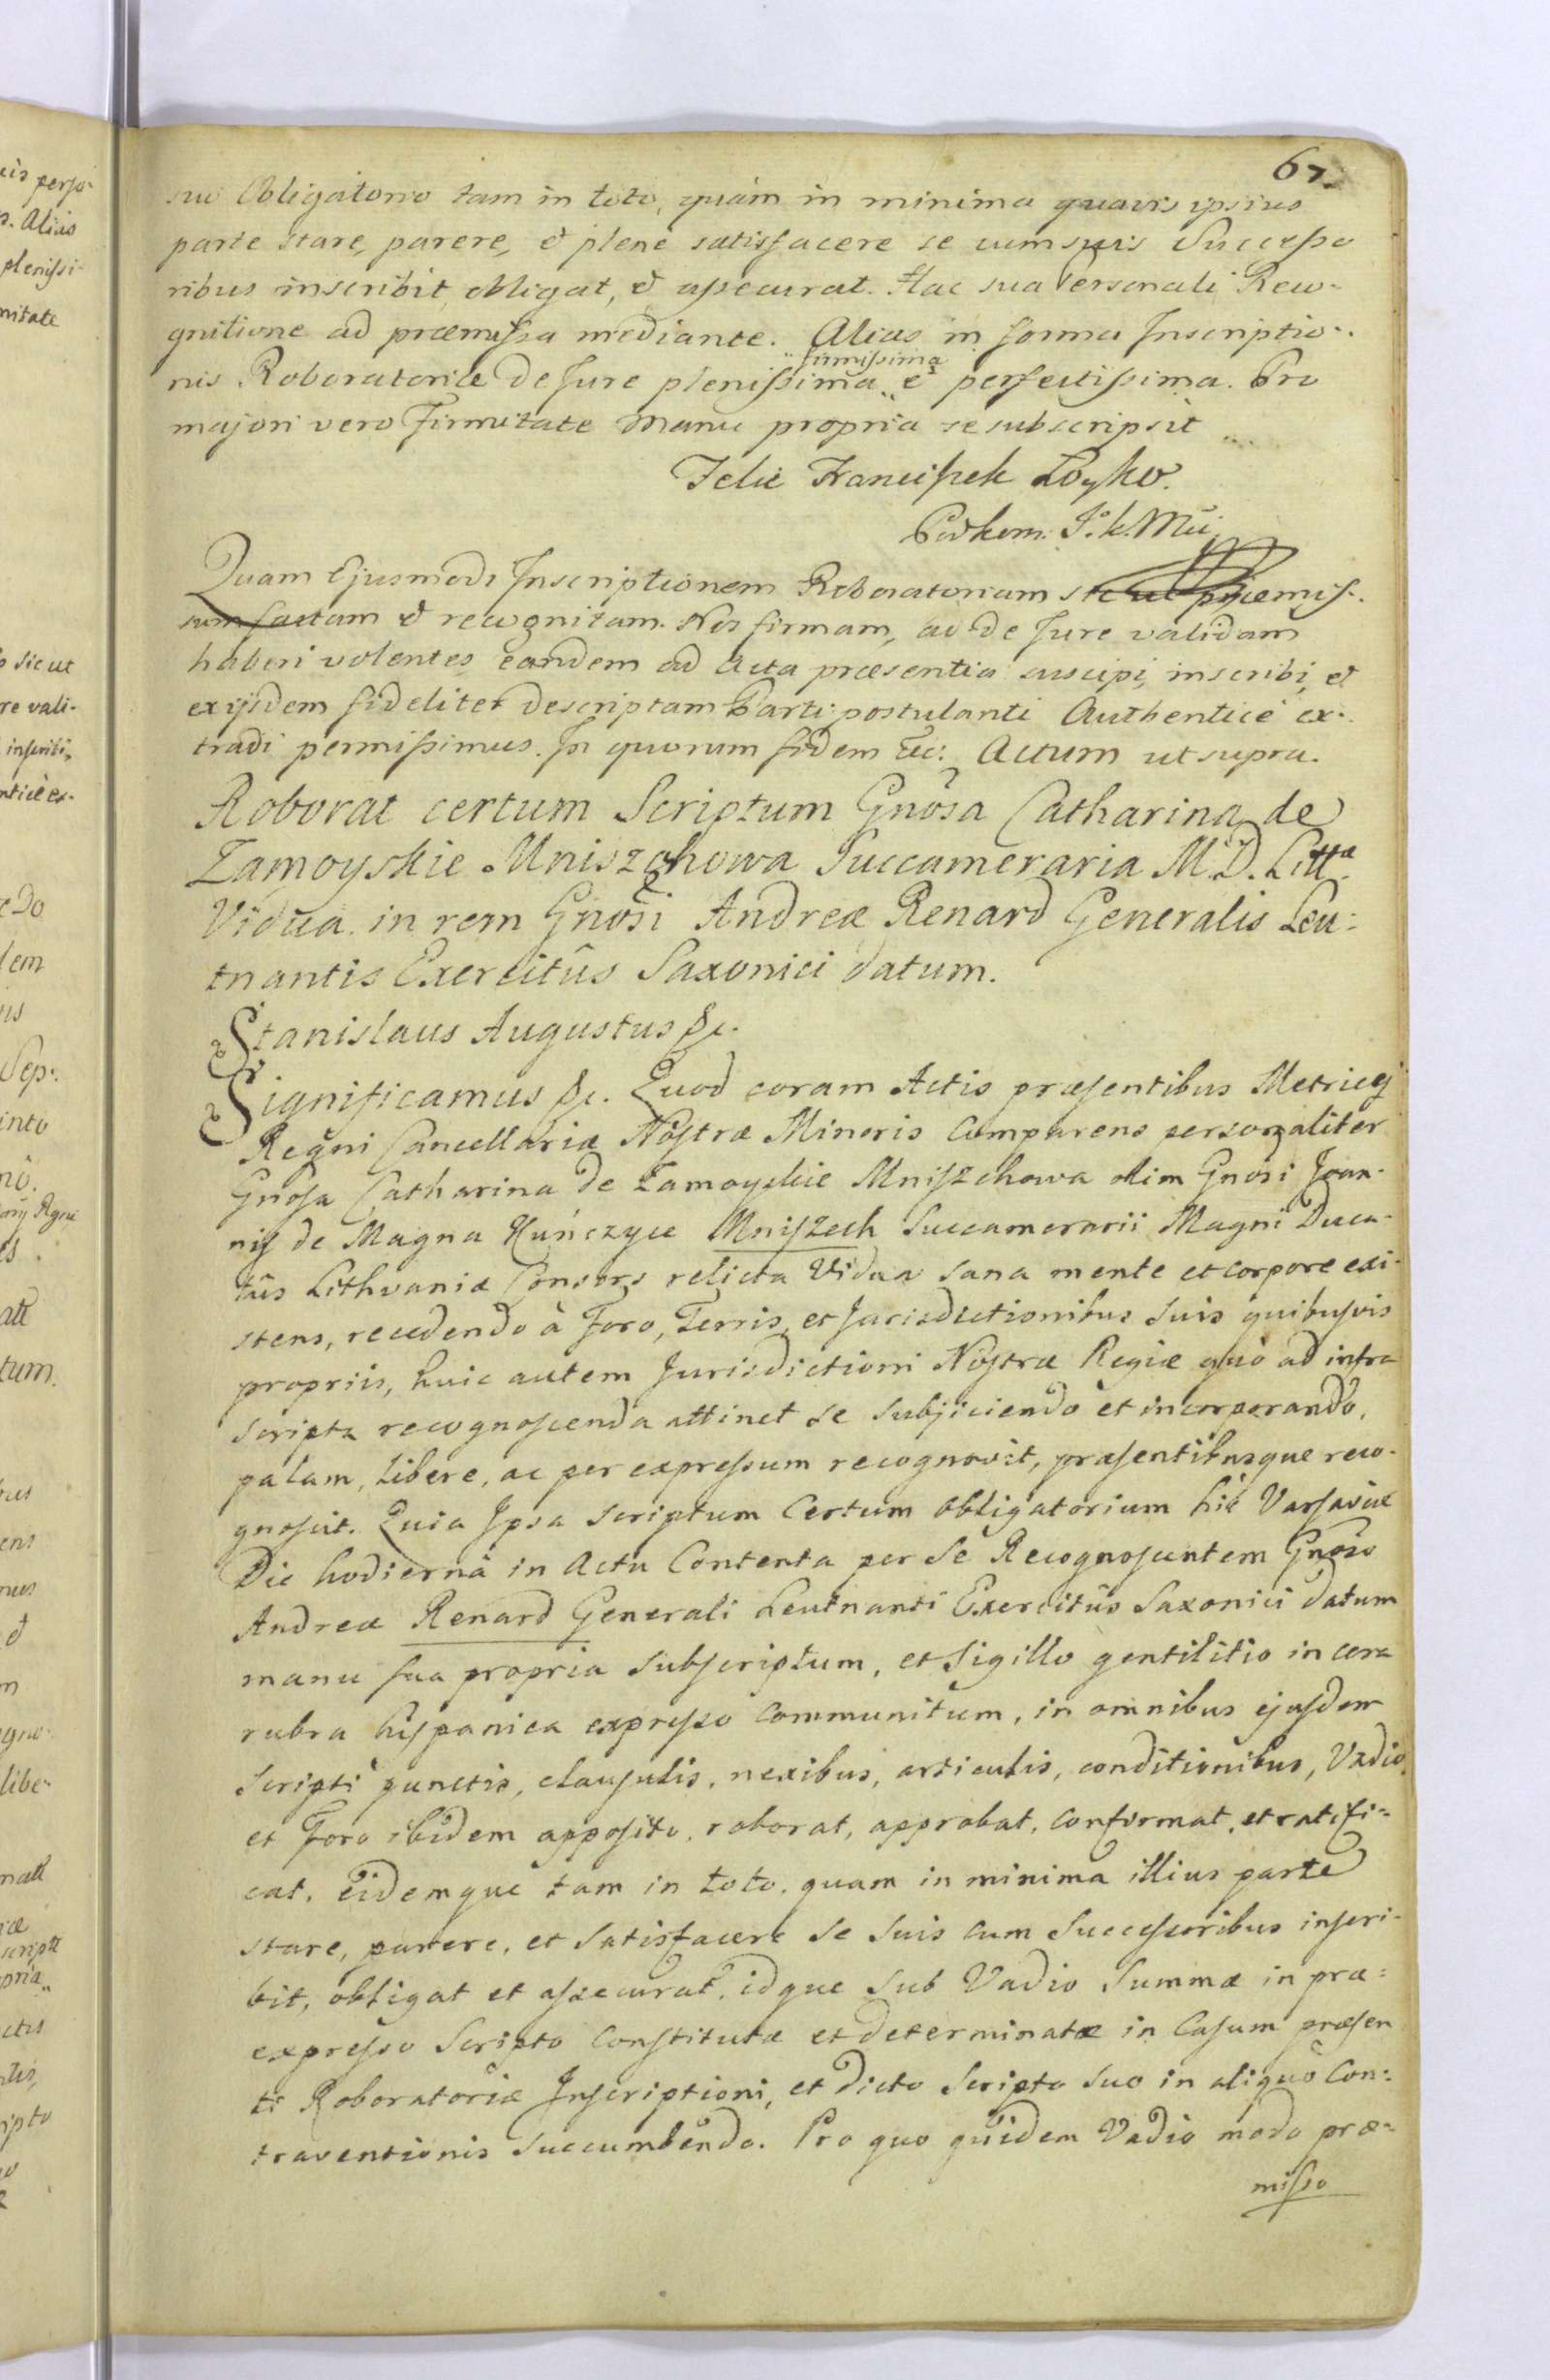 67.
suo Obligatorio tam in toto, quàm in minima quavis ipsius
parte stare, parere, & plenè satisfacere se cum suis Successo
ribus inscribit obligat, & assecurat. Hac sua Personali Reco-
gnitione ad præmissa mediante. Alias in forma Inscriptio-
nis Roboratoriæ de Jure plenissima, firmissima & perfectissima. Pro
majori vero Firmitate Manu propria se subscripsit
Felic Franciszek Łoyko.
Podkom. J. k. Mći
Quam Ejusmodi Inscriptionem Roboratoriam sic ut præmis-
sum factam & recognitam. Nos firmam, ac de Jure validam
haberi volentes eandem ad Acta præsentia suscipi, inscribi, et
ex ijsdem fideliter descriptam Parti postulanti Authenticè ex-
tradi permissimus. In quorum fidem &c: Actum ut supra.
Roborat certum Scriptum Gnosa Catharina de
Zamoyskie Mniszchowa Succameraria M. D. Littæ
Vidua in rem Gnosi Andreæ Renard Generalis Leu-
tnantis Exercitûs Saxonici datum.
Stanislaus Augustus &c.
Significamus &c. Quod coram Actis præsentibus Metricej
Regni Cancellariæ Nostræ Minoris Comparens personaliter
Gnosa Catharina de Zamoyskie Mniszchowa olim Gnosi Joan-
nis de Magna Kunczyce Mniszech Succamerarii Magni Duca-
tûs Lithvaniæ Consors relicta Vidua sana mente et corpore exi-
stens, recedendo à Foro, Terris, et Jurisdictionibus suis quibusvis
propriis, huic autem Jurisdictioni Nostræ Regiæ quò ad infra
scripta recognoscenda attinet se subjiciendo et incorporando,
palam, libere, ac per expressum recognovit, præsentibusque reco-
gnoscit. Quia Ipsa scriptum Certum obligatorium hic Varsaviæ
Die hodiernâ in Actu Contenta per Se Recognoscentem Gnoso
Andreæ Renard Generali Leutnanti Exercitûs Saxonici datum
manu sua propria subscriptum, et Sigillo gentilitio in cera
rubra hispanica expresso communitum, in omnibus ejusdem
Scripti punctis, clausulis, nexibus, articulis, conditionibus, Vadio,
et Foro ibidem apposito, roborat, approbat, confirmat, et ratifi-
cat. eidemque tam in toto, quam in minima illius parte
stare, parere, et satisfacere se suis cum Successoribus inscri-
bit, obligat et assecurat. idque sub Vadio Summæ in præ-
expresso Scripto Constitutæ et determinatæ in Casum præsen
ti Roboratoriæ Inscriptioni, et dicto Scripto suo in aliquo Con-
traventionis succumbendo. Pro quo quidem Vadio modo præ-
misso